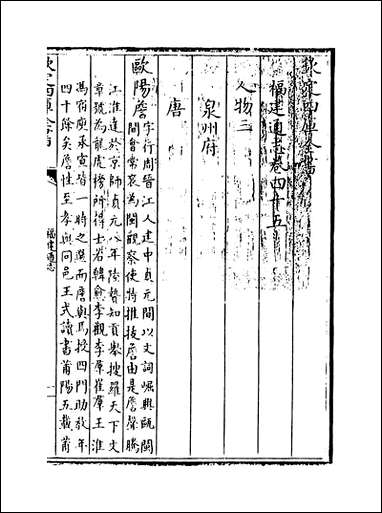 欽定四庫全書
福建通志卷四十五
人物三
泉州府
唐
歐陽詹
字行周晉江人建中貞元間以文詞崛興甌閩
間會常衮為閩觀察使特推拔詹由是詹聲騰
江淮達於京師貞元八年陸贄知貢舉搜羅天下文
章號為龍虎榜所得士若韓愈李觀李絳崔羣王淮
馮宿庾承宣皆一時之選而詹與馬授四門助教年
四十餘矣詹性至孝與同邑王式讀書莆陽五載莆
福建通志